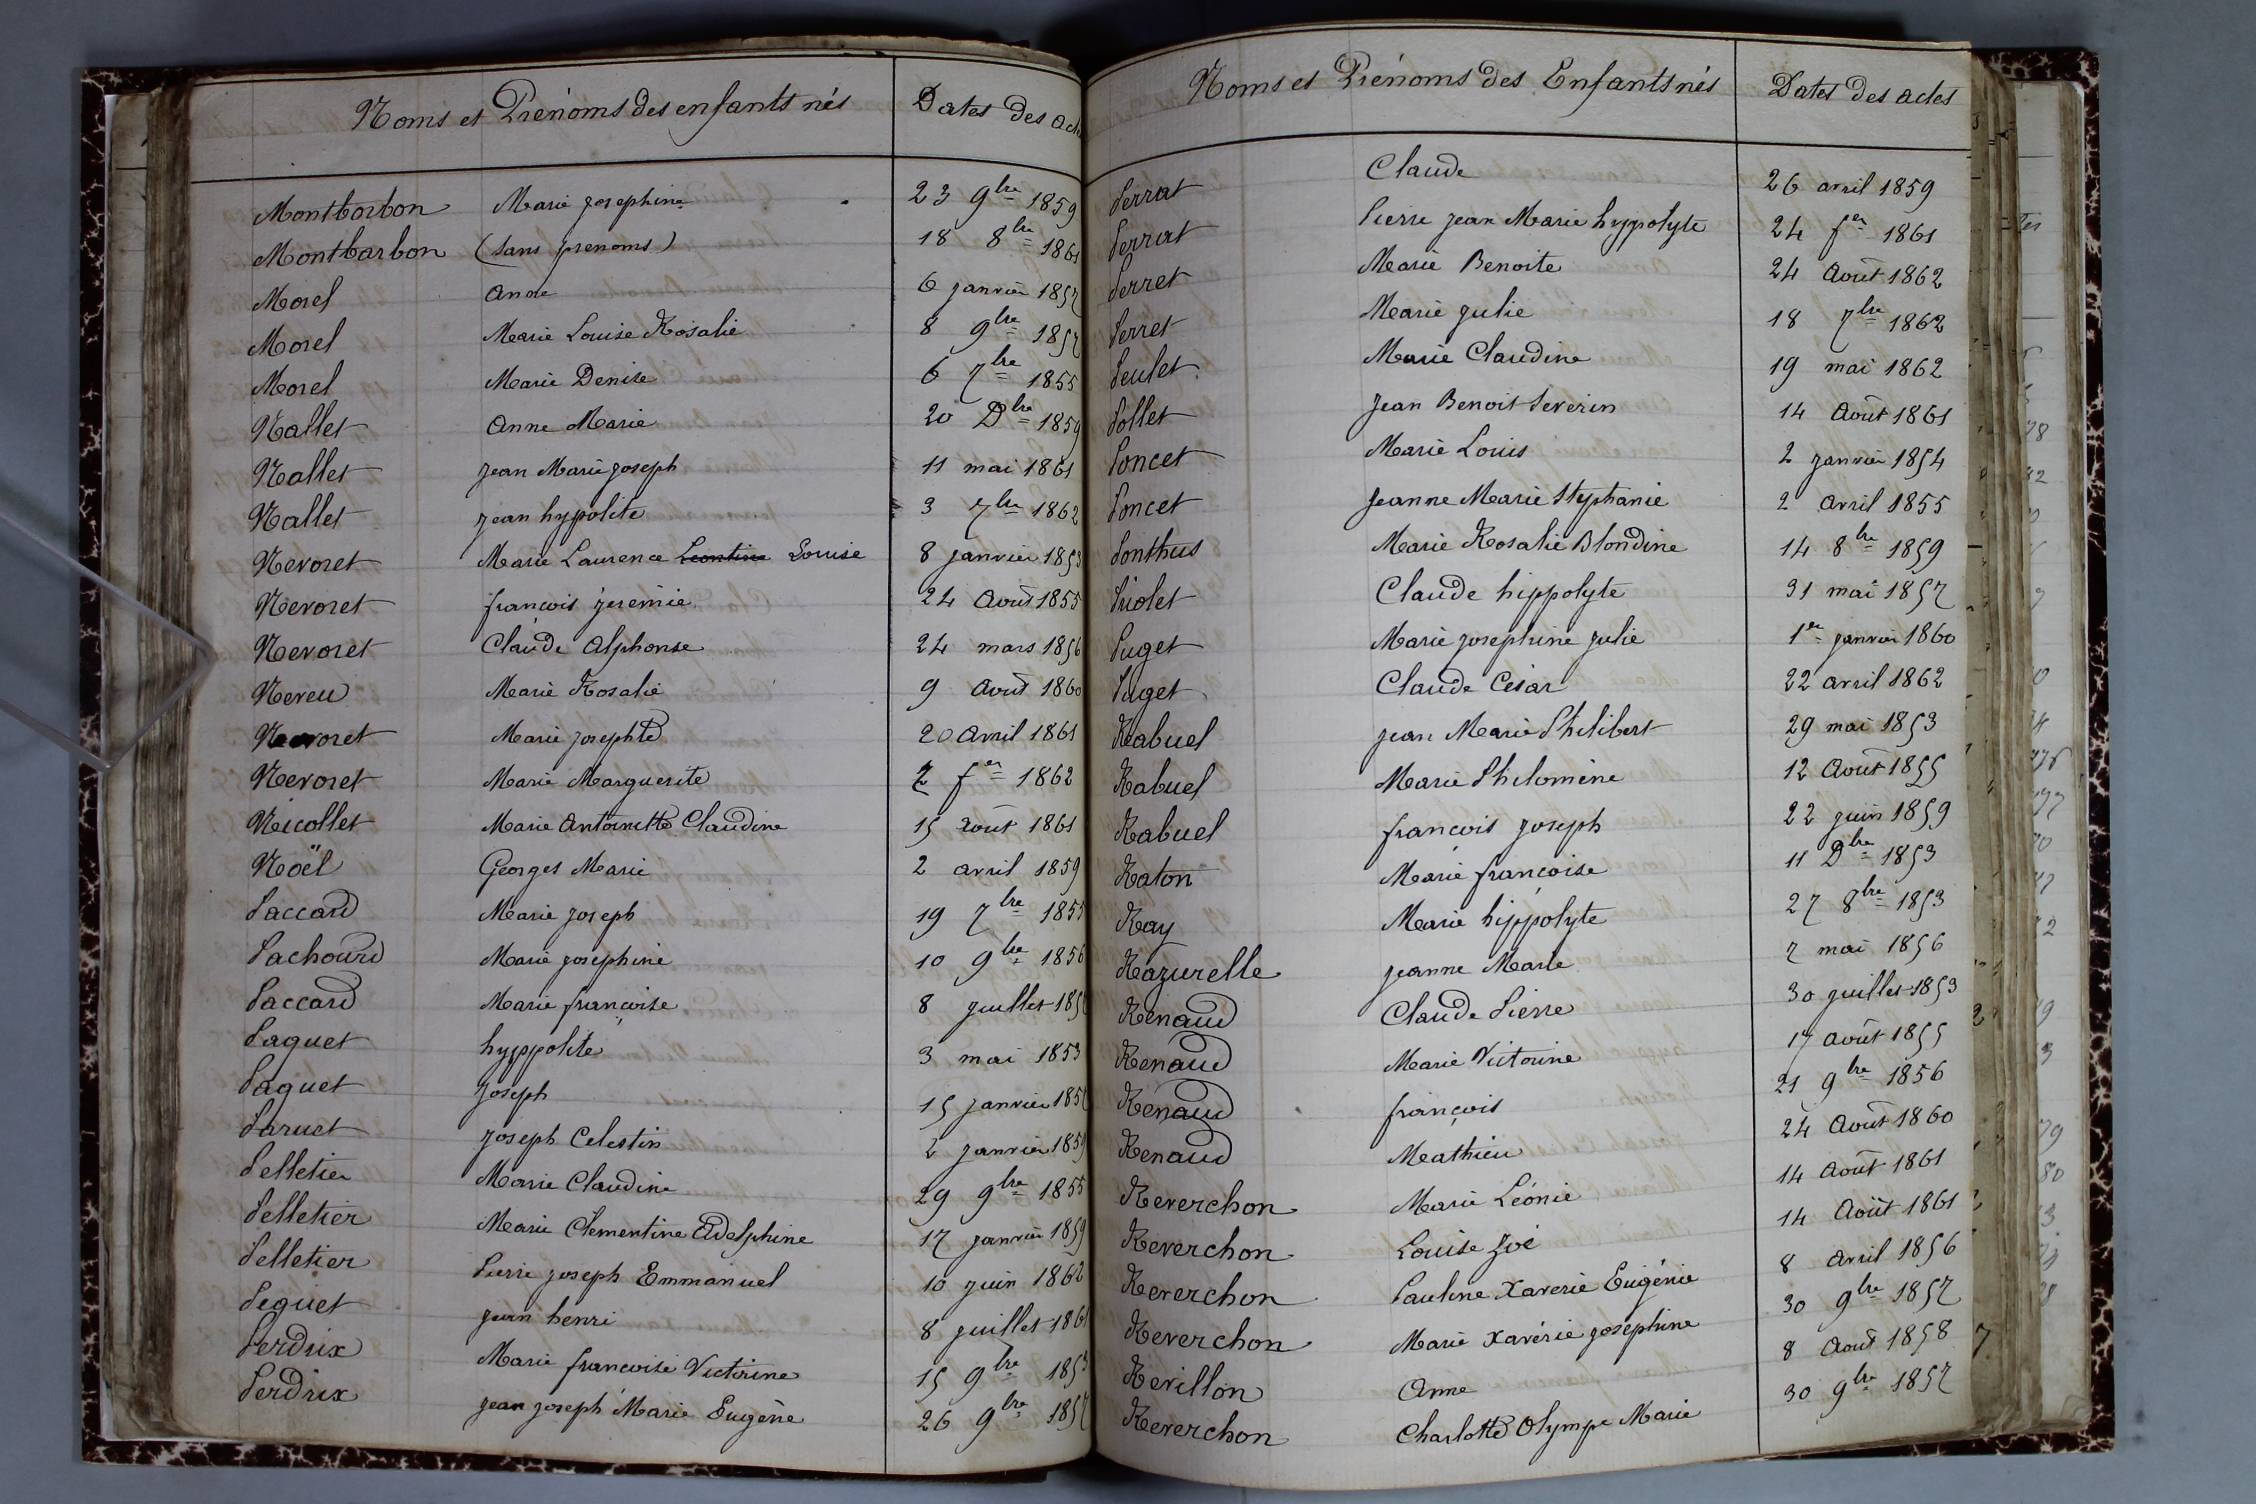 Noms et Prénoms des enfants nés Dates des act
Montbarbon Marie josephine 23 9bre 1859
Montbarbon (sans prenoms) 18 8bre 1861
Morel anne 6 janvier 1857
Morel Marie Louise Rosalie 8 9bre 1857
Morel Marie Denise 6 7bre 1855
Nallet Anne Marie 20 Dbre 1859
Nallet jean Marie joseph 11 mai 1861
Nallet jean hypolite 3 7bre 1862
Nevoret Marie Laurence Leontine Louise 8 janvier 1853
Nevoret françois jeremie 24 Août 1855
Nevoret Claude Alphonse 24 mars 1856
Neveu Marie Rosalie 9 Août 1860
Nevoret Marie josephte 20 Avril 1861
Nevoret Marie Marguerite 2 fer 1862
Nicollet Marie Antoinette Claudine 15 Août 1861
Noël Georges Marie 2 avril 1859
Paccard Marie joseph 19 7bre 1855
Pachoud Marie josephine 10 9bre 1856
Paccard Marie françoise 8 juillet 185
Paquet hyppolite 3 mai 1853
Paquet joseph 15 janvier 185
Paruet joseph Celestin 2 janvier 1859
Pelletier Marie Claudine 29 9bre 1855
Pelletier Marie Clementine Adelphine 17 janvier 1859
Pelletier Pierre joseph Emmanuel 10 juin 1862
Peguet jean henri 8 juillet 186
Perdrix Marie françoise Victorine 15 9bre 1853
Perdrix jean joseph Marie Eugène 26 9bre 1857
Noms et Prénoms des Enfants nés Dates des actes
Perrat Claude 26 avril 1859
Perrat Pierre jean Marie hyppolyte 24 fer 1861
Perret Marie Benoite 24 Août 1862
Perret Marie julie 18 7bre 1862
Peulet Marie Claudine 19 mai 1862
Pollet Jean Benoit Severin 14 Août 1861
Poncet Marie Louis 2 janvier 1854
Poncet Jeanne Marie Stephanie 2 avril 1855
Ponthus Marie Rosalie Blondine 14 8bre 1859
Priolet Claude hippolyte 31 mai 1857
Puget Marie josephine julie 1er janvier 1860
Puget Claude César 22 avril 1862
Rabuel jean Marie Philibert 29 mai 1853
Rabuel Marie Philomène 12 Août 1855
Rabuel françois joseph 22 juin 1859
Raton Marie françoise 11 Dbre 1853
Ray Marie hippolyte 27 8bre 1853
Razurelle jeanne Marie 7 mai 1856
Renaud Claude Pierre 30 juillet 1853
Renaud Marie Victorine 17 août 1855
Renaud françois 21 9bre 1856
Renaud Mathieu 24 Août 1860
Reverchon Marie Léonie 14 Août 1861
Reverchon Louise Zoé 14 Août 1861
Reverchon Pauline Xaverie Eugénie 8 Avril 1856
Reverchon Marie Xavérie josephine 30 9bre 1857
Revillon Anne 8 Août 1858
Reverchon Charlotte Olympe Marie 30 9bre 1857